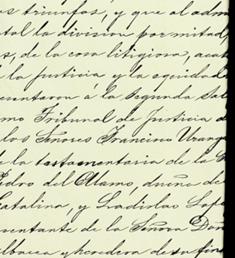 s triunfos, y que al adm
tal la division por mitad,
s, de la cosa litigiosa, aca
la justicia y la equidad
sentaron á la Segunda Sal
mo Tribunal de Justicia d
los Señores Francisco Urang
e la testamentaria de la S
Pedro del Alamo, dueño de
Catalina, y Ladislao Lop
sentante de la Señora Doñ
albacea y heredera de su fin